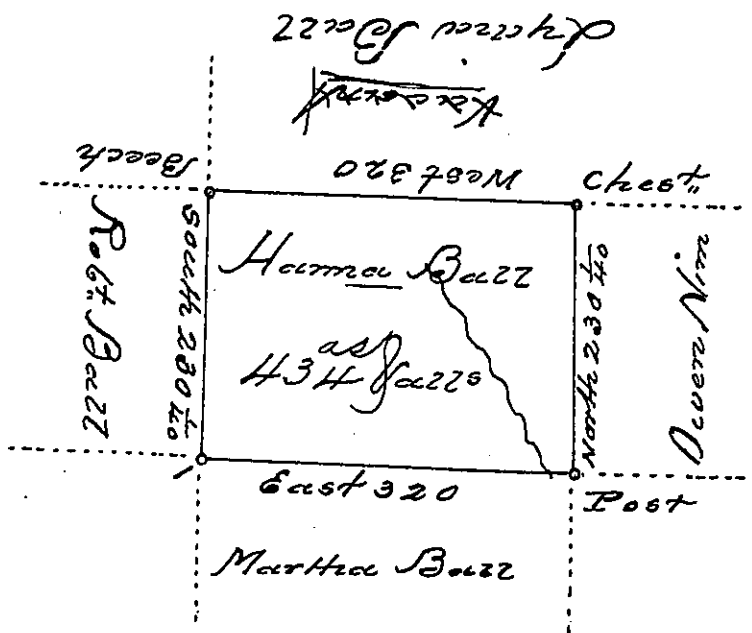 Lydia Ball
Beech
West 320
Chest"
Robt. Ball
South 230 1/40
Hanna Ball
434 as & alls
North 230 1/40
Owen Nim
East 320
Post
Martha Ball